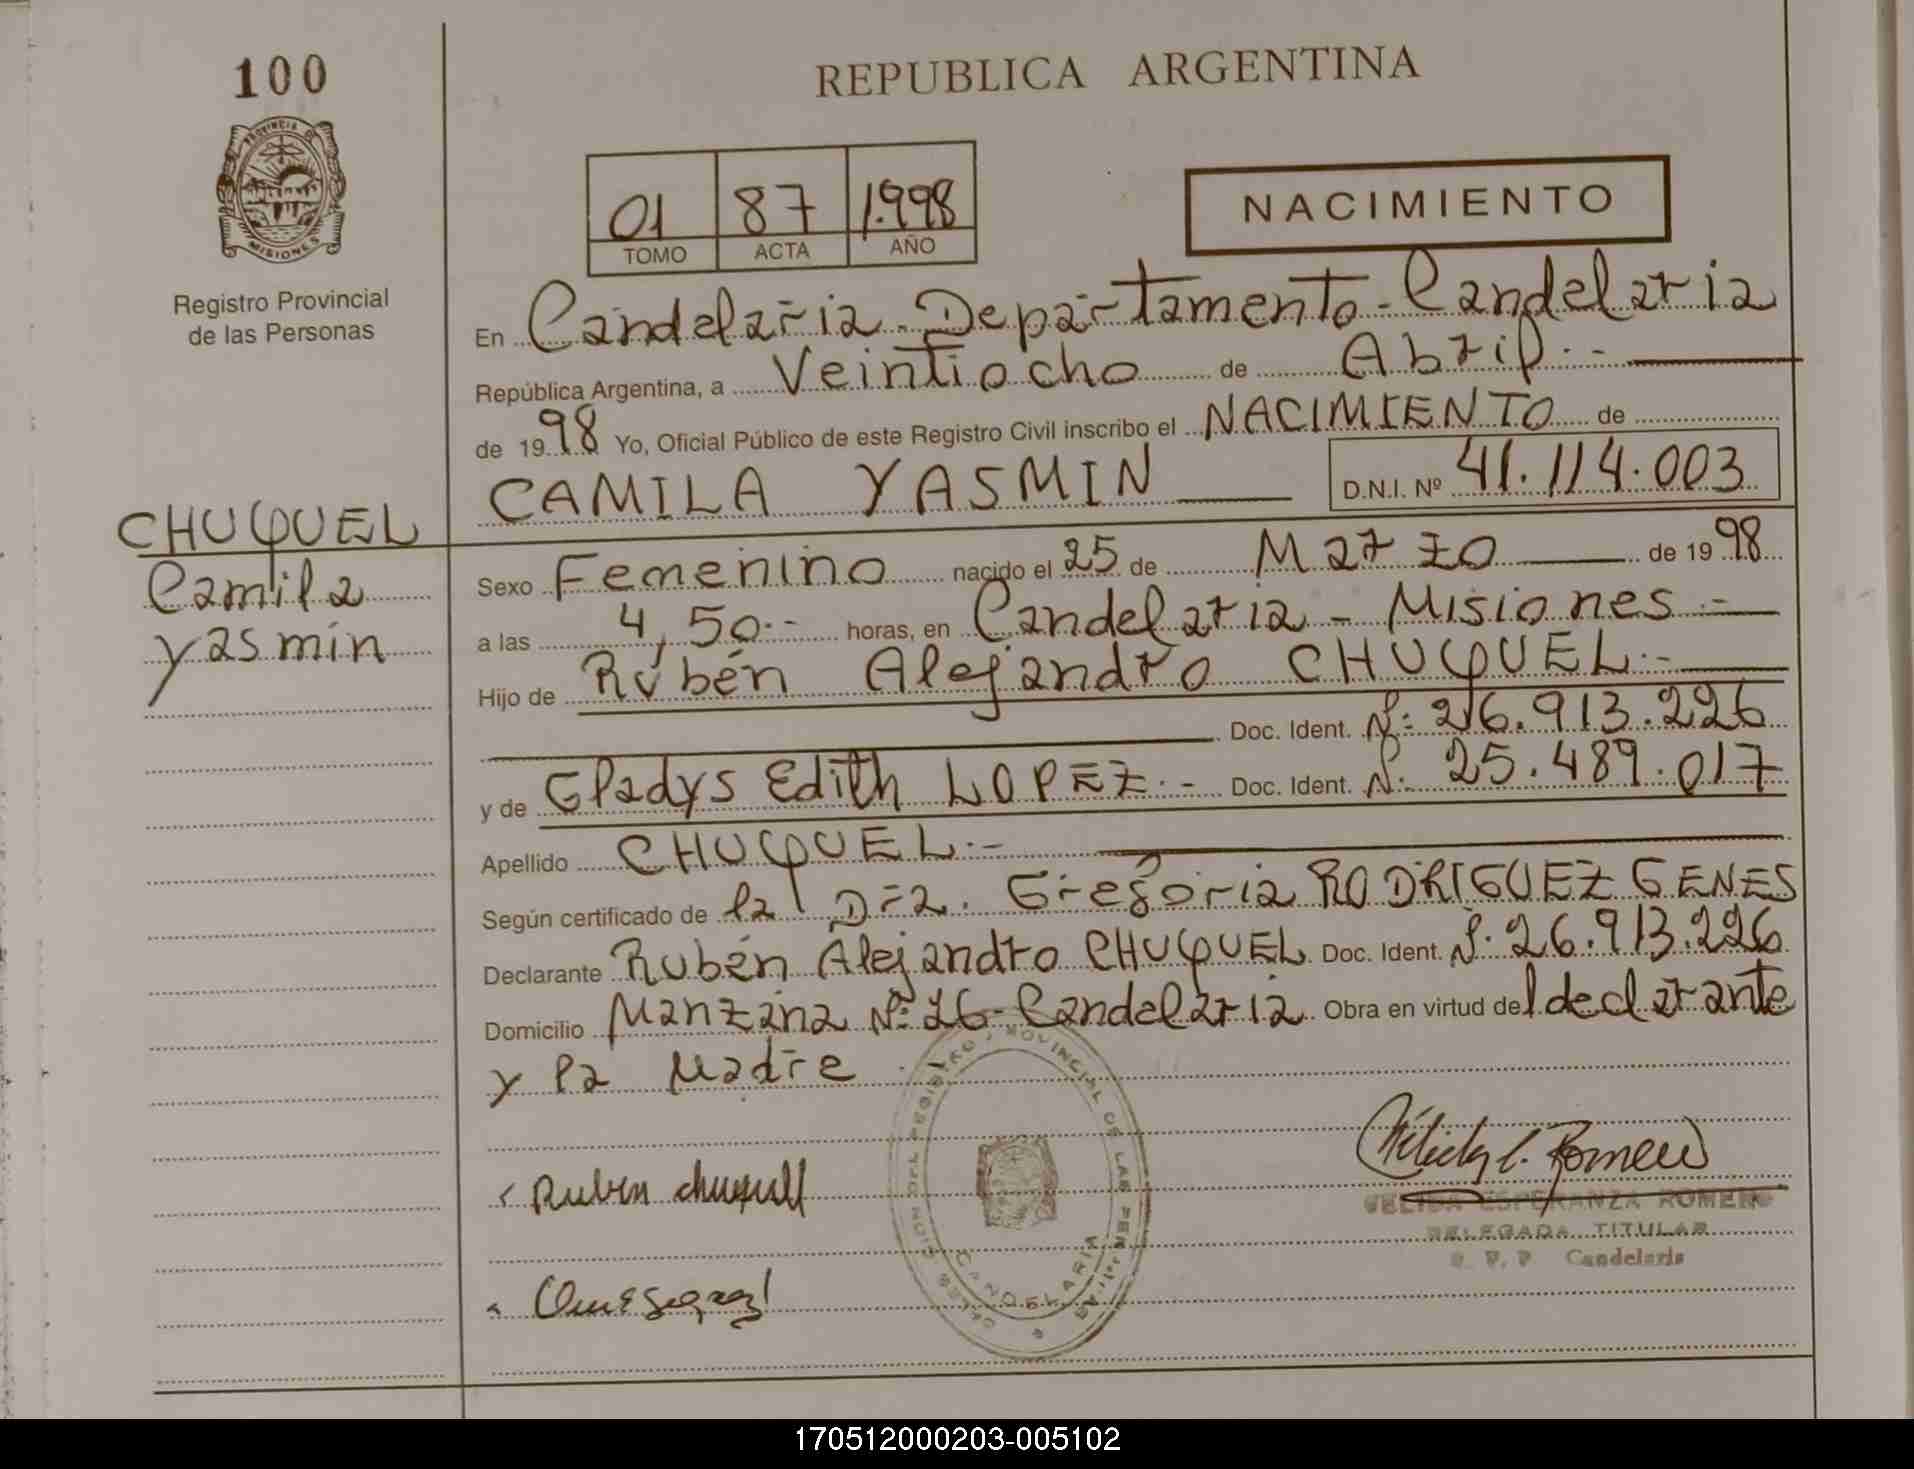 100
REPUBLICA ARGENTINA
PROVINCIA DE
MISIONES
Registro Provincial
de las Personas
01 87 1.998
TOMO ACTA AÑO
NACIMIENTO
En Candelaria - Departamento - Candelaria
República Argentina, a Veintiocho de Abril.-
de 1998 Yo, Oficial Público de este Registro Civil inscribo el NACIMIENTO de
CAMILA YASMIN D.N.I. Nº 41.114.003
CHUQUEL
Camila
Yasmin
Sexo Femenino nacido el 25 de Marzo de 1998
a las 4,50.- horas, en Candelaria - Misiones.-
Hijo de Rubén Alejandro CHUQUEL.-
Doc. Ident. Nº: 26.913.226
y de Gladys Edith LOPEZ.- Doc. Ident. Nº. 25.489.017
Apellido CHUQUEL.-
Según certificado de la Dra. Gregoria RODRIGUEZ GENES
Declarante Rubén Alejandro CHUQUEL Doc. Ident. Nº. 26.913.226
Domicilio Manzana Nº: 26 - Candelaria Obra en virtud del declarante
y la Madre
Ruben
CANDELARIA
ESPERANZA ROMERO
DELEGADA TITULAR
Candelaria
170512000203-005102